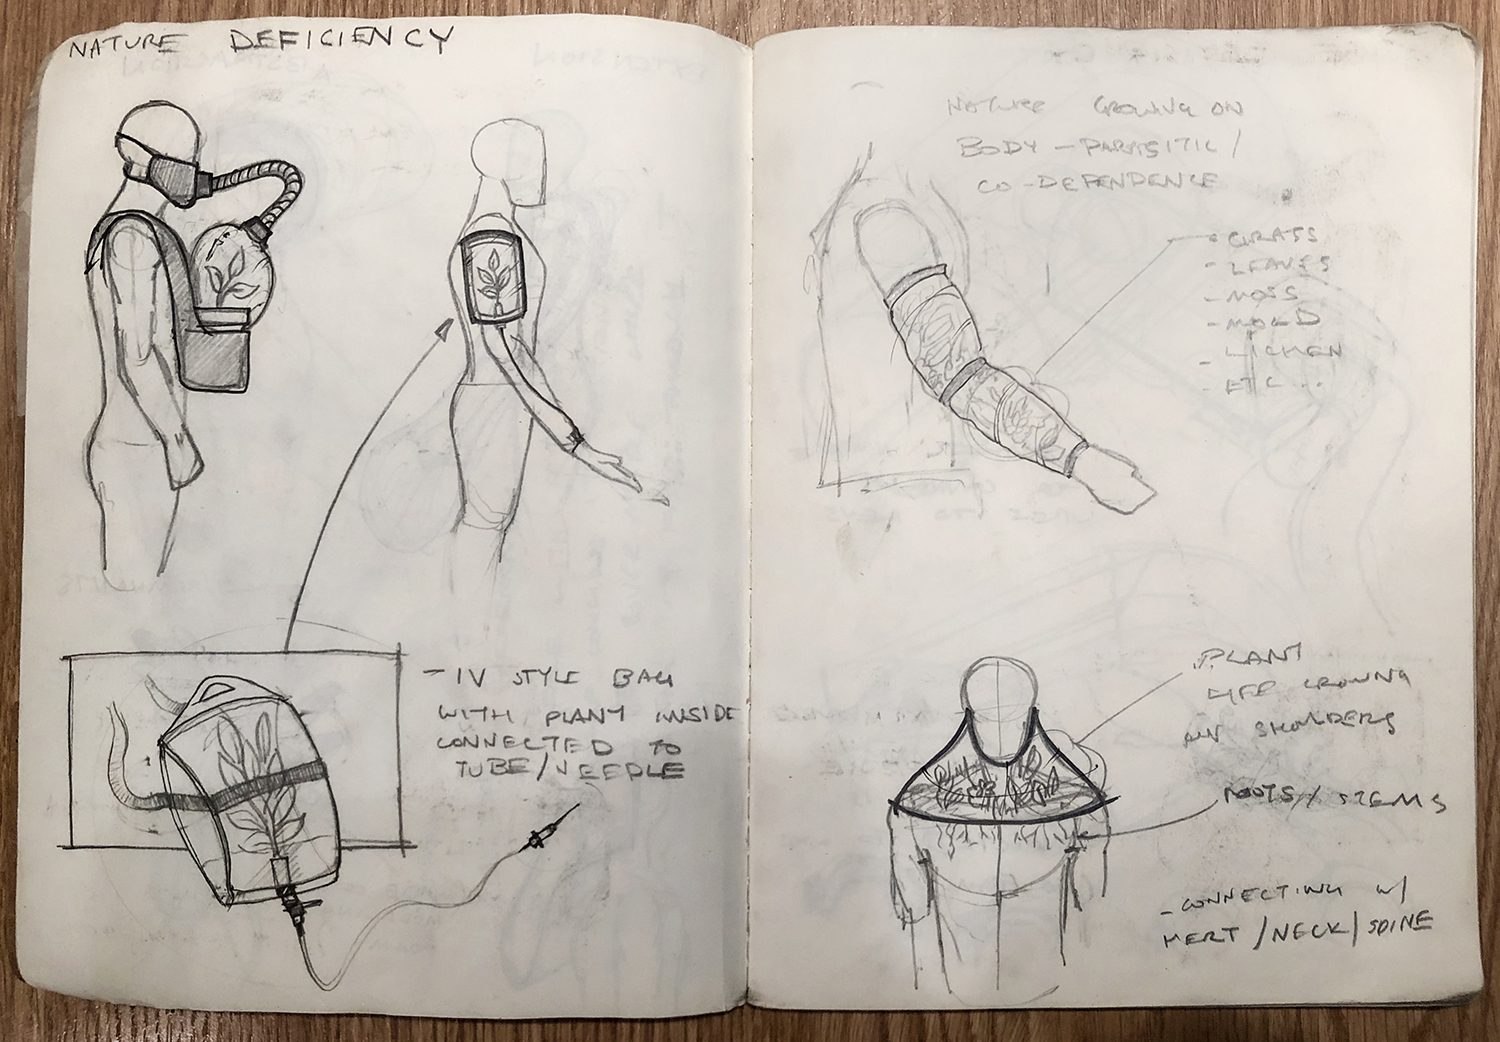 NATURE DEFICIENCY
- IV STYLE BAG
WITH PLANT INSIDE
CONNECTED TO
TUBE/NEEDLE
NATURE GROWING ON
BODY - PARASITIC/
CO-DEPENDENCE
- GRASS
- LEAVES
- MOSS
- MOLD
- LICHEN
- ETC...
PLANT
LIFE GROWING
ON SHOULDERS
ROOTS/STEMS
- CONNECTING W/
HERT/NECK/SPINE